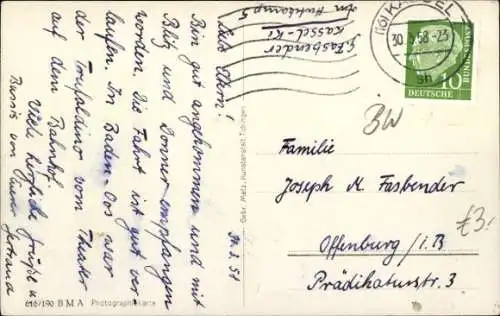 im Hutekamp 5
Kassel-Ki.
G. Fasbender
(16) KASSEL
30. 3. 58 - 23
sn
DEUTSCHE
BUNDESPOST
10
BW
Familie
Joseph M. Fasbender
£3.
Offenburg/i.B
Prädikaturstr. 3
30.3.58
Liebe Eltern!
Bin gut angekommen und mit
Blitz und Donner empfangen
worden. Die Fahrt ist gut ver-
laufen. In Baden-Oos war
der vom Theater
auf dem Bahnhof.
Viele herzliche Grüße u.
von Eurer
Gertrud
Gebr. Metz, Kunstanstalt, Tübingen
616/190 BMA Photographiekarte